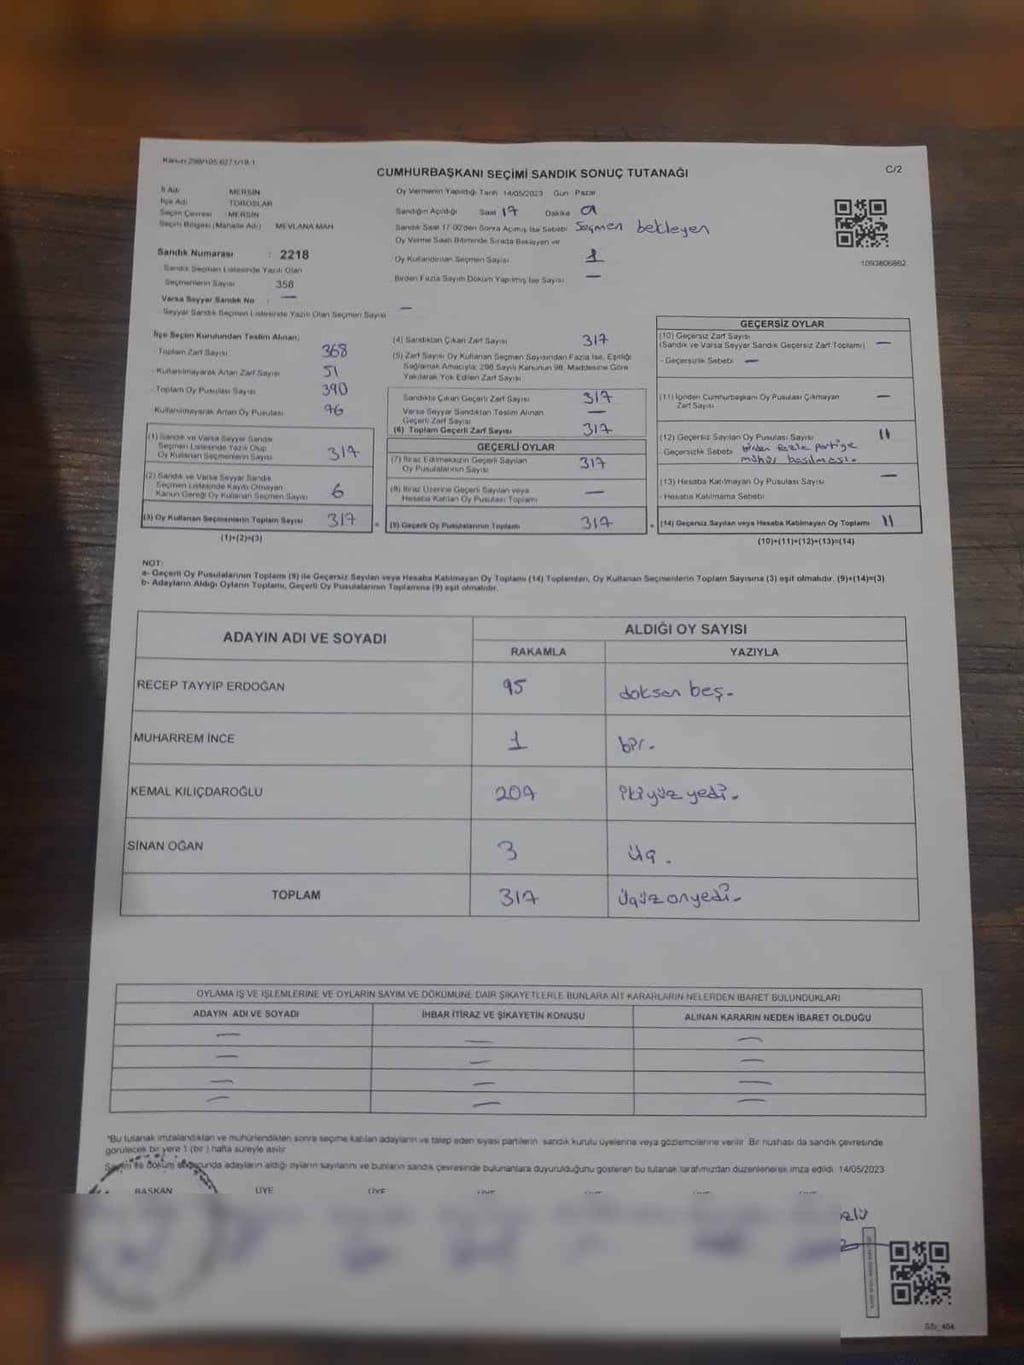 Kanun 298/105 6271/18-1
CUMHURBAŞKANI SEÇİMİ SANDIK SONUÇ TUTANAĞI
C/2
İl Adı : MERSİN
İlçe Adı : TOROSLAR
Seçim Çevresi : MERSİN
Seçim Bölgesi (Mahalle Adı) : MEVLANA MAH
Sandık Numarası : 2218
Sandık Seçmen Listesinde Yazılı Olan
Seçmenlerin Sayısı : 358
Varsa Seyyar Sandık No : —
Seyyar Sandık Seçmen Listesinde Yazılı Olan Seçmen Sayısı —
Oy Vermenin Yapıldığı Tarih 14/05/2023 Gün Pazar
Sandığın Açıldığı Saat 17 Dakika
Sandık Saat 17:00'den Sonra Açılmış İse Sebebi Seçmen bekleyen
Oy Verme Saati Bitiminde Sırada Bekleyen ve
Oy Kullandırılan Seçmen Sayısı 1
Birden Fazla Sayım Döküm Yapılmış İse Sayısı —
1093806862
İlçe Seçim Kurulundan Teslim Alınan;
Toplam Zarf Sayısı 368
Kullanılmayarak Artan Zarf Sayısı 51
Toplam Oy Pusulası Sayısı 390
Kullanılmayarak Artan Oy Pusulası
(1) Sandık ve Varsa Seyyar Sandık
Seçmen Listesinde Yazılı Olup
Oy Kullanan Seçmenlerin Sayısı 317
(2) Sandık ve Varsa Seyyar Sandık
Seçmen Listesinde Kayıtlı Olmayan
Kanun Gereği Oy Kullanan Seçmen Sayısı 6
(3) Oy Kullanan Seçmenlerin Toplam Sayısı 317
(1)+(2)=(3)
(4) Sandıktan Çıkan Zarf Sayısı 317
(5) Zarf Sayısı Oy Kullanan Seçmen Sayısından Fazla İse, Eşitliği
Sağlamak Amacıyla; 298 Sayılı Kanunun 98. Maddesine Göre
Yakılarak Yok Edilen Zarf Sayısı
Sandıkta Çıkan Geçerli Zarf Sayısı 317
Varsa Seyyar Sandıktan Teslim Alınan
Geçerli Zarf Sayısı —
(6) Toplam Geçerli Zarf Sayısı 317
GEÇERLİ OYLAR
(7) İtiraz Edilmeksizin Geçerli Sayılan
Oy Pusulalarının Sayısı 317
(8) İtiraz Üzerine Geçerli Sayılan veya
Hesaba Katılan Oy Pusulası Toplamı —
(9) Geçerli Oy Pusulalarının Toplamı 317
GEÇERSİZ OYLAR
(10) Geçersiz Zarf Sayısı —
(Sandık ve Varsa Seyyar Sandık Geçersiz Zarf Toplamı)
- Geçersizlik Sebebi —
(11) İçinden Cumhurbaşkanı Oy Pusulası Çıkmayan
Zarf Sayısı —
(12) Geçersiz Sayılan Oy Pusulası Sayısı 11
Geçersizlik Sebebi birden fazla partiye
mühür basılması.
(13) Hesaba Katılmayan Oy Pusulası Sayısı —
- Hesaba Katılmama Sebebi
(14) Geçersiz Sayılan veya Hesaba Katılmayan Oy Toplamı 11
(10)+(11)+(12)+(13)=(14)
NOT:
a- Geçerli Oy Pusulalarının Toplamı (9) ile Geçersiz Sayılan veya Hesaba Katılmayan Oy Toplamı (14) Toplamları, Oy Kullanan Seçmenlerin Toplam Sayısına (3) eşit olmalıdır. (9)+(14)=(3)
b- Adayların Aldığı Oyların Toplamı, Geçerli Oy Pusulalarının Toplamına (9) eşit olmalıdır.
ADAYIN ADI VE SOYADI
ALDIĞI OY SAYISI
RAKAMLA YAZIYLA
RECEP TAYYİP ERDOĞAN 95 doksan beş.
MUHARREM İNCE 1 bir.
KEMAL KILIÇDAROĞLU 207 ikiyüz yedi.
SİNAN OĞAN 3 üç.
TOPLAM 317 üçyüzonyedi.
OYLAMA İŞ VE İŞLEMLERİNE VE OYLARIN SAYIM VE DÖKÜMÜNE DAİR ŞİKAYETLERLE BUNLARA AİT KARARLARIN NELERDEN İBARET BULUNDUKLARI
ADAYIN ADI VE SOYADI İHBAR İTİRAZ VE ŞİKAYETİN KONUSU ALINAN KARARIN NEDEN İBARET OLDUĞU
— — —
— — —
— — —
— — —
"Bu tutanak imzalandıktan ve mühürlendikten sonra seçime katılan adayların ve talep eden siyasi partilerin sandık kurulu üyelerine veya gözlemcilerine verilir. Bir nüshası da sandık çevresinde
görülecek bir yere 1 (bir) hafta süreyle asılır
Sayım ve döküm sonucunda adayların aldığı oyların sayılarını ve bunların sandık çevresinde bulunanlara duyurulduğunu gösteren bu tutanak tarafımızdan düzenlenerek imza edildi. 14/05/2023
BAŞKAN ÜYE ÜYE